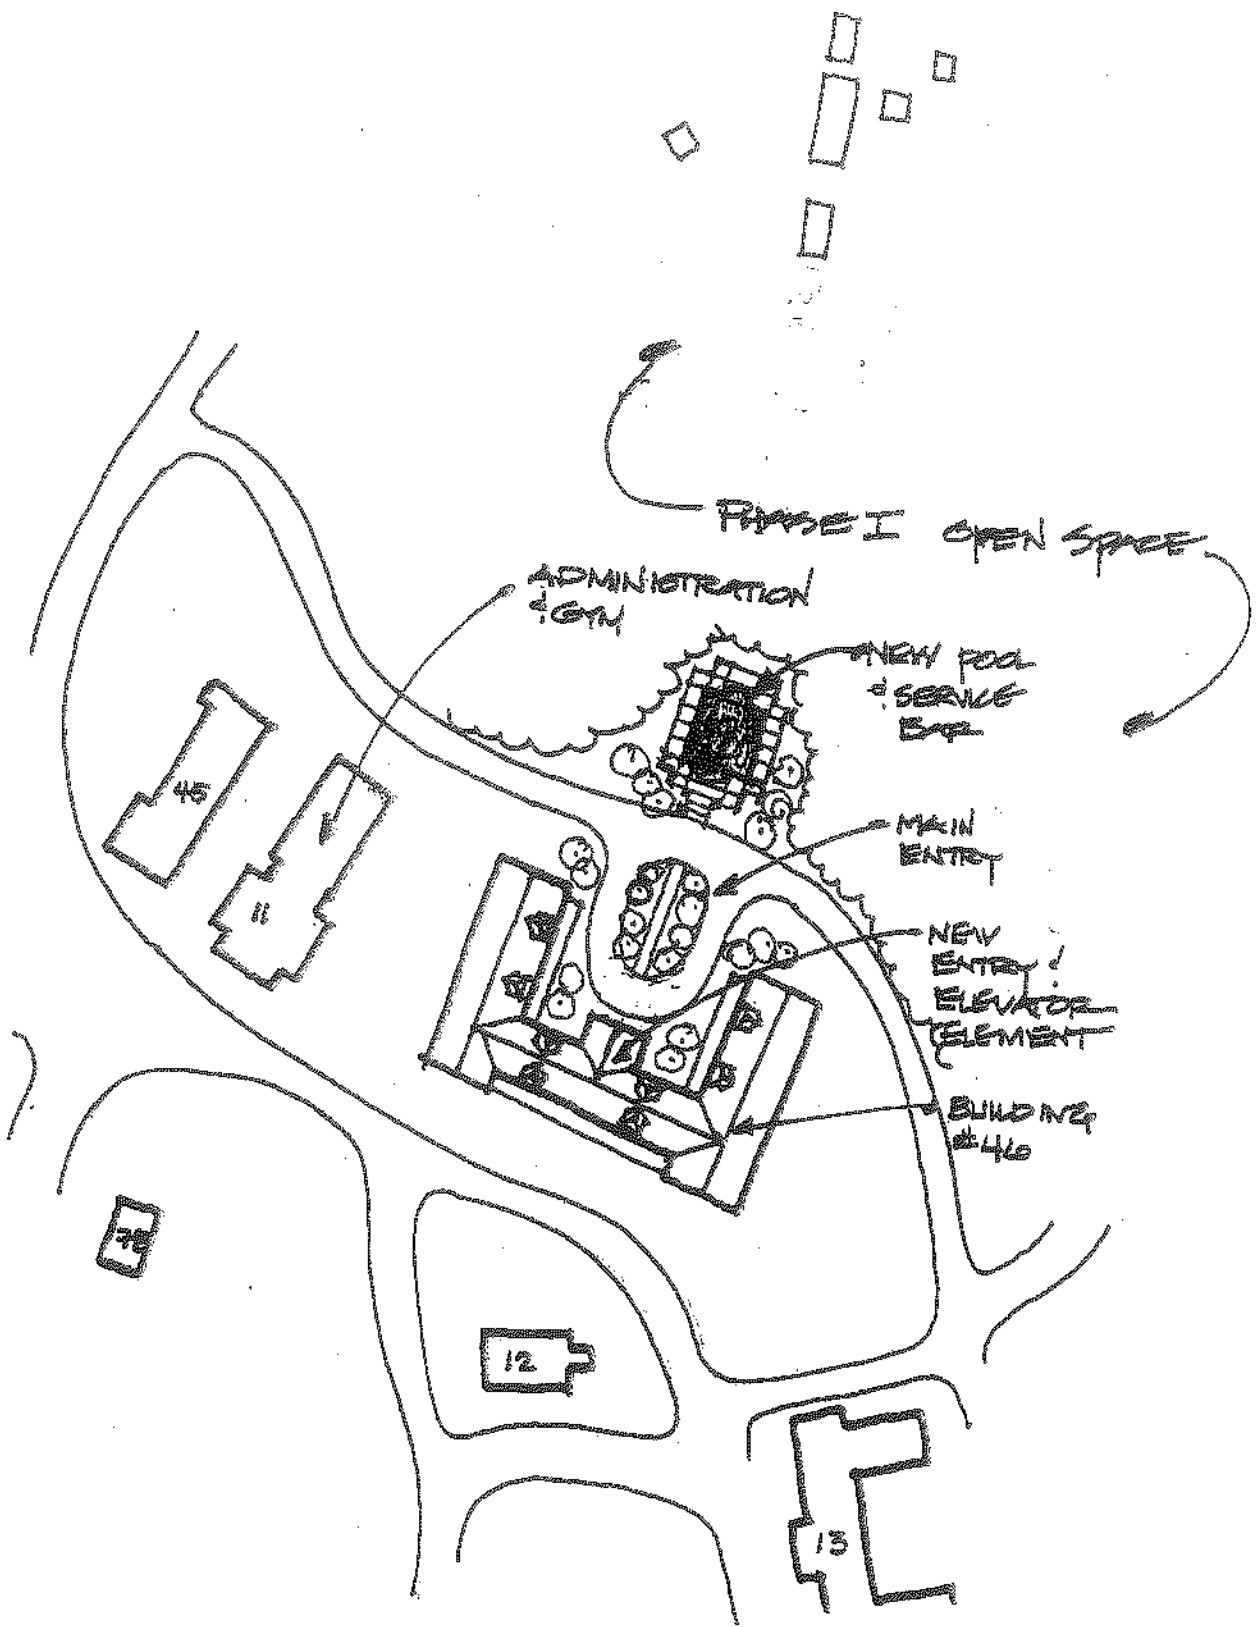 PHASE I OPEN SPACE
ADMINISTRATION
& GYM
NEW POOL
& SERVICE
BAR
45
11
MAIN
ENTRY
NEW
ENTRY &
ELEVATOR
ELEMENT
BUILDING
#46
78
12
13